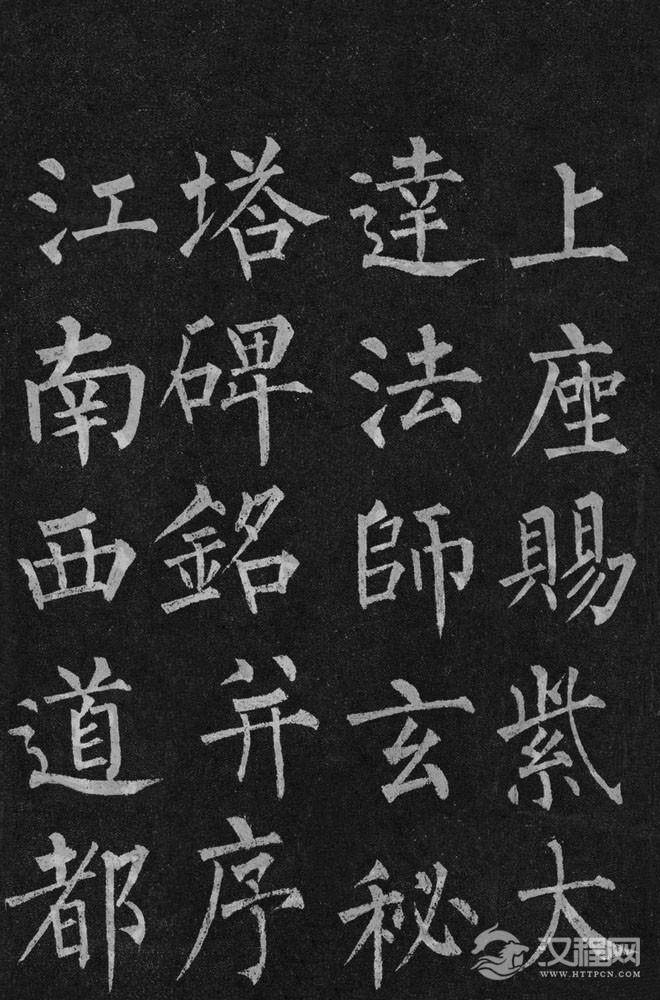 上座賜紫大
達法師玄秘
塔碑銘并序
江南西道都
汉程网
WWW.HTTPCN.COM